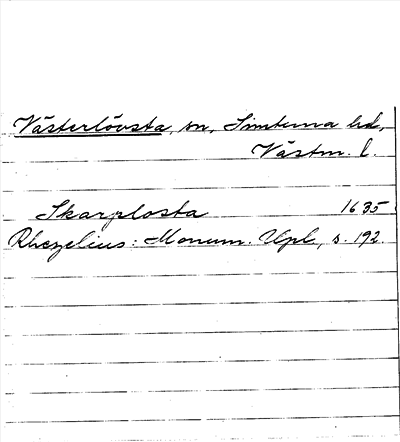 Västerlövsta, sn, Simtuna hd,
Västm. l.
Skarplösta 1635
Rhezelius: Monum. Upl., s. 192.